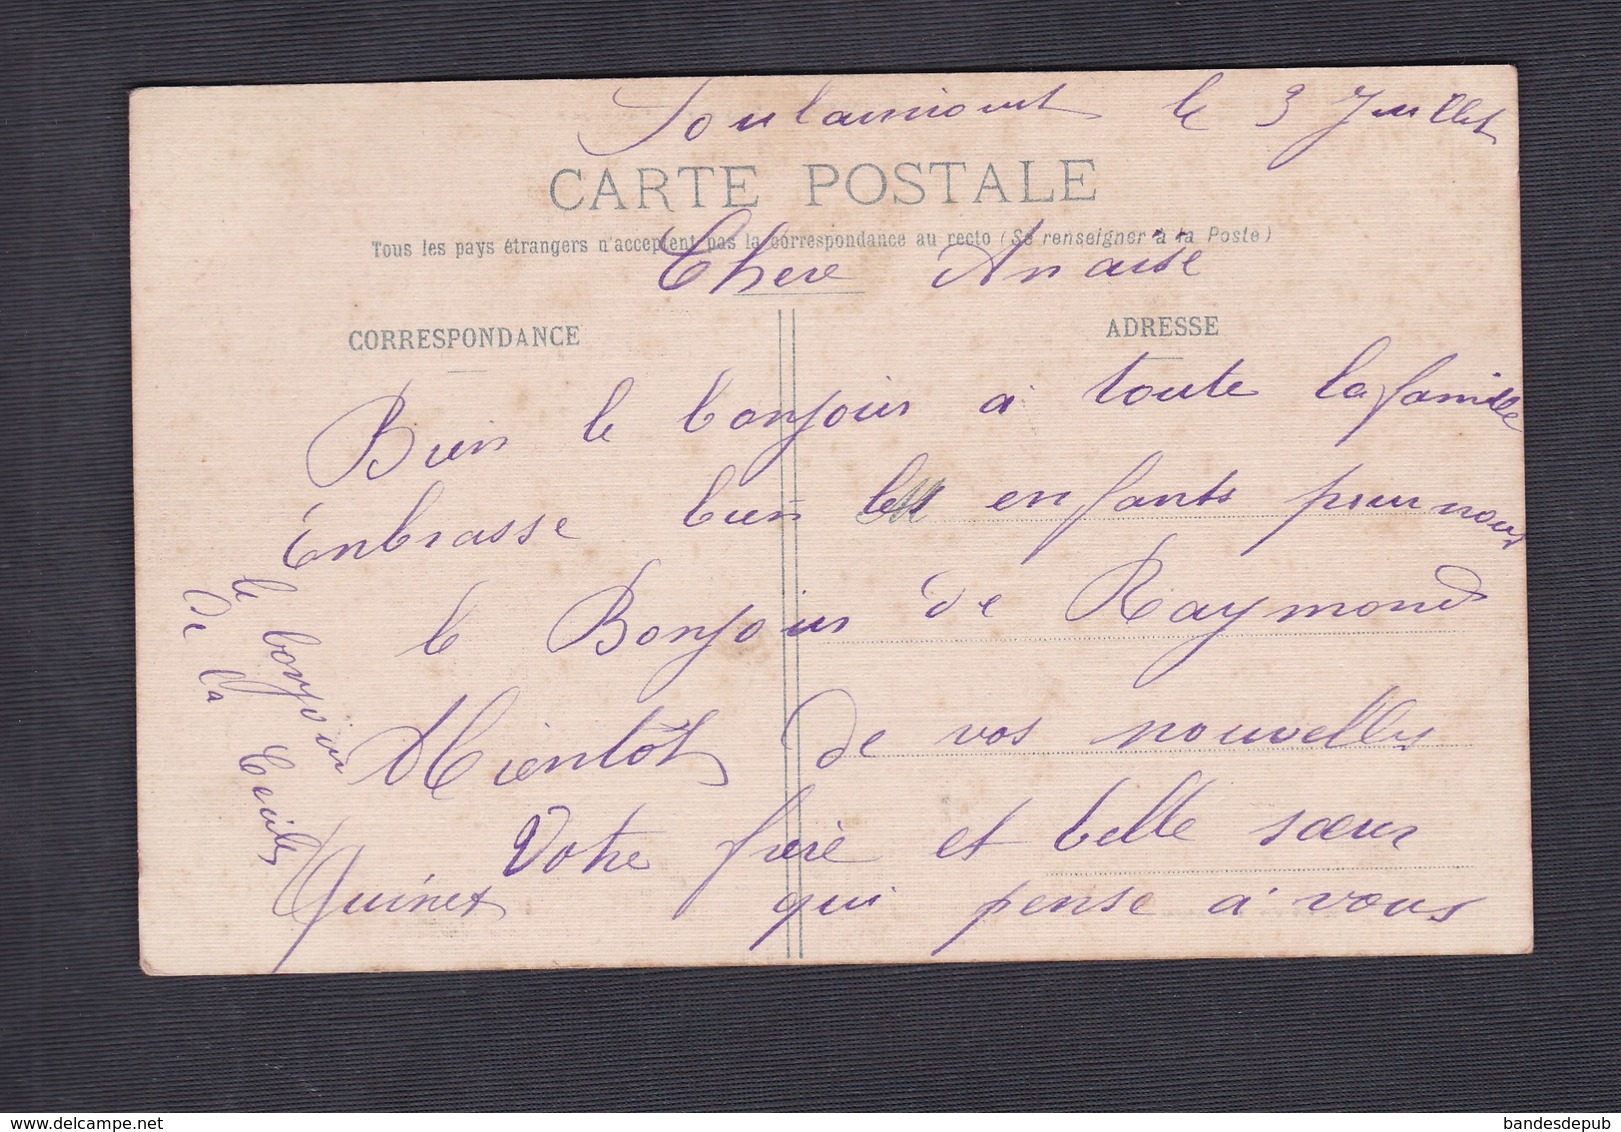 Soulaincourt le 3 Juillet
CARTE POSTALE
Tous les pays étrangers n'acceptent pas la correspondance au recto (Se renseigner à la Poste)
Chere Anaise
CORRESPONDANCE
ADRESSE
Bien le bonjour à toute la famille
Enbrasse bien les enfants pour nous
le Bonjour de Raymond
Mientôt de vos nouvelles
Votre frère et belle sœur
Quinet qui pense à vous
le bonjour
De la
bandesdepub